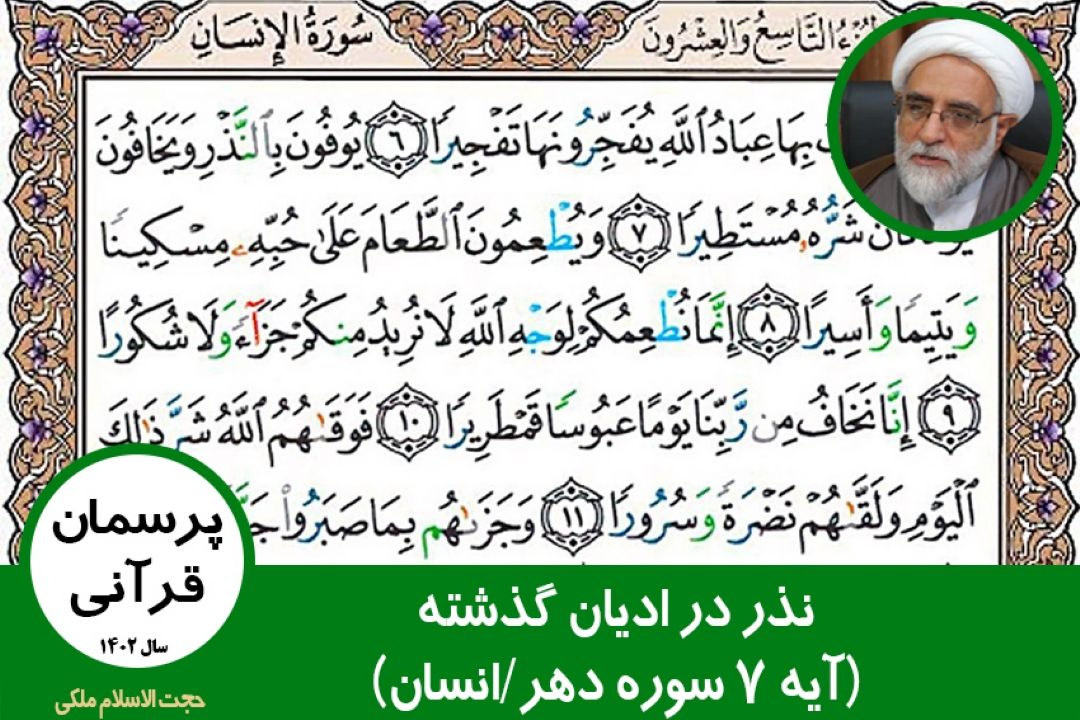 سُورَةُ الإِنسَانِ
الجُزْءُ التَّاسِعُ وَالعِشْرُونَ
بِهَا عِبَادُ ٱللَّهِ يُفَجِّرُونَهَا تَفْجِيرًا ٦ يُوفُونَ بِٱلنَّذْرِ وَيَخَافُونَ
كَانَ شَرُّهُۥ مُسْتَطِيرًا ٧ وَيُطْعِمُونَ ٱلطَّعَامَ عَلَىٰ حُبِّهِۦ مِسْكِينًا
وَيَتِيمًا وَأَسِيرًا ٨ إِنَّمَا نُطْعِمُكُمْ لِوَجْهِ ٱللَّهِ لَا نُرِيدُ مِنكُمْ جَزَآءً وَلَا شُكُورًا
٩ إِنَّا نَخَافُ مِن رَّبِّنَا يَوْمًا عَبُوسًا قَمْطَرِيرًا ١٠ فَوَقَىٰهُمُ ٱللَّهُ شَرَّ ذَٰلِكَ
ٱلْيَوْمِ وَلَقَّىٰهُمْ نَضْرَةً وَسُرُورًا ١١ وَجَزَىٰهُم بِمَا صَبَرُوا۟
پرسمان
قرآنی
سال ۱۴۰۲
نذر در ادیان گذشته
(آیه ۷ سوره دهر/انسان)
حجت الاسلام ملکی